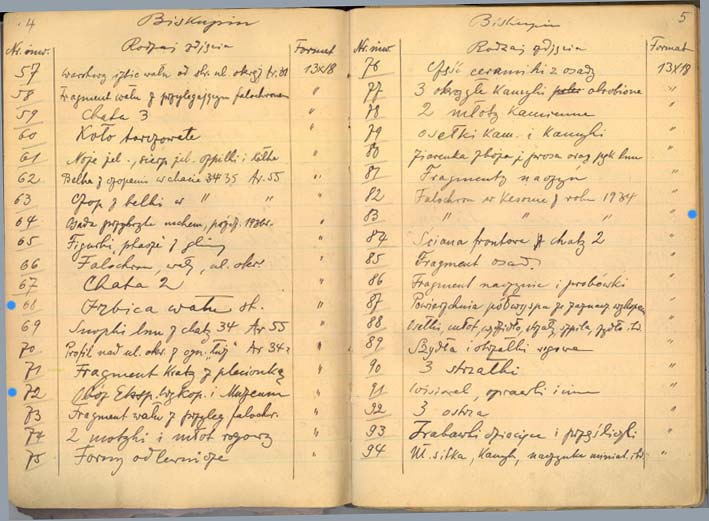 4
Biskupin
Nr. inw. Rodzaj zdjęcia Format
57 warstwy wału od ul. okręż. Ar. 13x18
58 Fragment wału z przylegającym falochronem "
59 Chata 3 "
60 Koło tarczowate "
61 Noże jel., sierp jel. szpilki i "
62 Belka z czopem w chacie 34 35 Ar. 55 "
63 Czop z belki w " " "
64 Osada przykryta mchem, "
65 Figurki, ptaszę z gliny "
66 Falochron, wały, ul. okr. "
67 Chata 2 "
68 Izbica wału "
69 Snopki lnu z chaty 34 Ar 55 "
70 Profil nad ul. okr. z Ar 34 "
71 Fragment kraty z plecionką "
72 Obóz Eksp. Wykop. i Muzeum "
73 Fragment wału z przyleg falochr. "
74 2 motyki i młot rogowy "
75 Formy odlewnicze "
5
Biskupin
Nr. inw. Rodzaj zdjęcia Format
76 Część ceramiki z osady 13x18
77 3 okrągłe kamyki obrobione "
78 2 młoty kamienne "
79 osełki kam. i kamyki "
80 Ziarenka zboża z prosa oraz pęk lnu "
81 Fragmenty naczyn "
82 Falochron w kesonie z roku 1934 "
83 " " " " "
84 Sciana frontowa z chaty 2 "
85 Fragment osad. "
86 Fragment naczynia i "
87 Powierzchnia półwyspu ze "
88 młot, szpila, szydło "
89 Szydła i rogowe "
90 3 strzałki "
91 wisiorek, oprawki i inne "
92 3 ostrza "
93 Zabawki dziecięce i przęśliczki "
94 kamyk, naczynka miniat. "